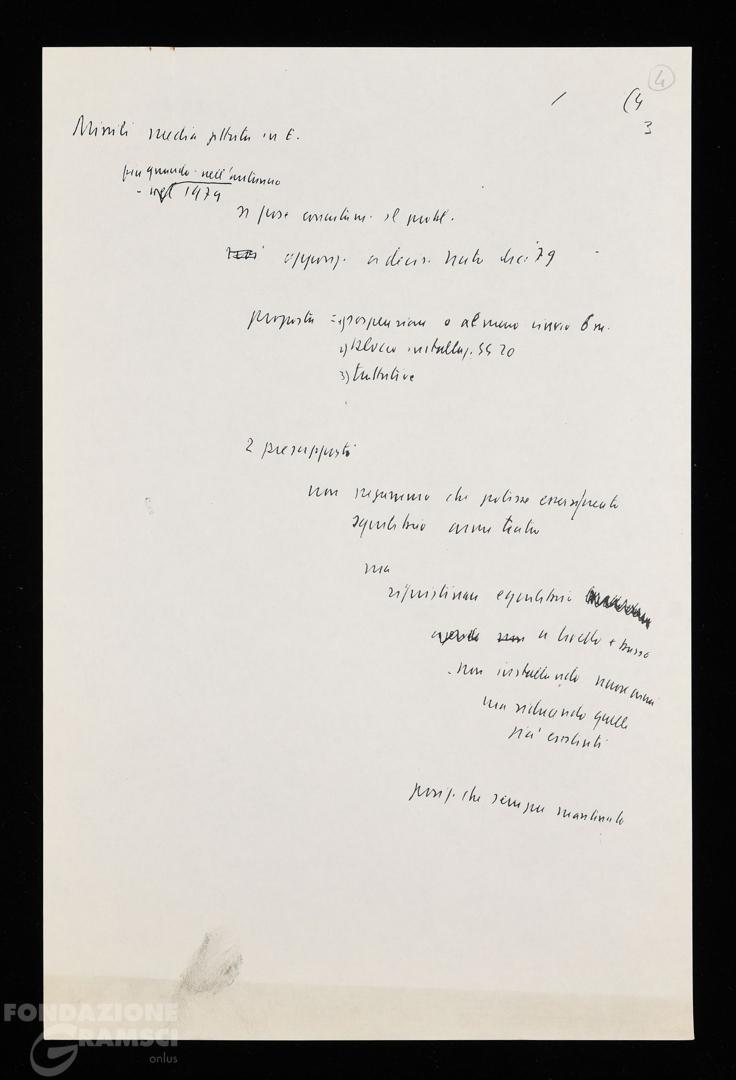 4
(4
3
Missili media gittata in E.
fin quando nell'autunno
1979
si pose il probl.
opposiz. a decis. Nato dic. 79
proposta = 1) sospensione o almeno rinvio 6 m.
2) blocco installaz. SS 20
3) trattative
2 presupposti
non negammo che potesse esserci
equilibrio armi teatro
ma
ripristinare equilibrio
a livello + basso
non installando nuove armi
ma riducendo quelle
già esistenti
posiz. che sempre mantenuto
FONDAZIONE
GRAMSCI
onlus